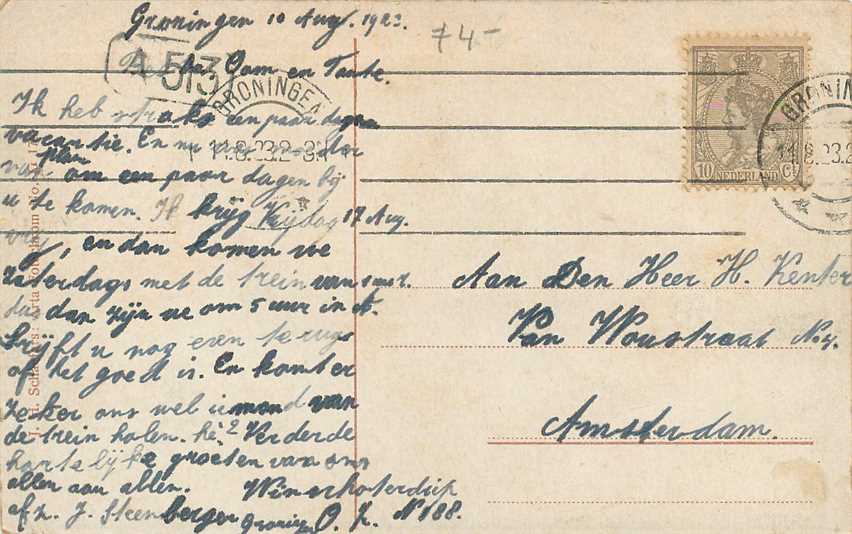 Groningen 10 Aug. 1923.
74-
A 513
Oom en Tante.
GRONINGEN
11.8.23.2
Ik heb straks een paar dagen
vacantie. En nu was moeder
van plan om een paar dagen bij
u te komen. Ik krijg Vrijdag 17 Aug.
vrij, en dan komen we
Zaterdags met de trein van 1 uur.
dus dan zijn we om 5 uur in A.
Srijft u nog even terug
of het goed is. En komt er
zeker ons wel iemand van
de trein halen. hè? Verderde
hartelijke groeten van ons
allen aan allen.
afz. J. Steenberger
Winschoterdiep
Groningen O. Z. No 188.
10 Ct NEDERLAND
GRONIN
11.8.23.2
Aan Den Heer H. Kenter
Van Woustraat No 4.
Amsterdam.